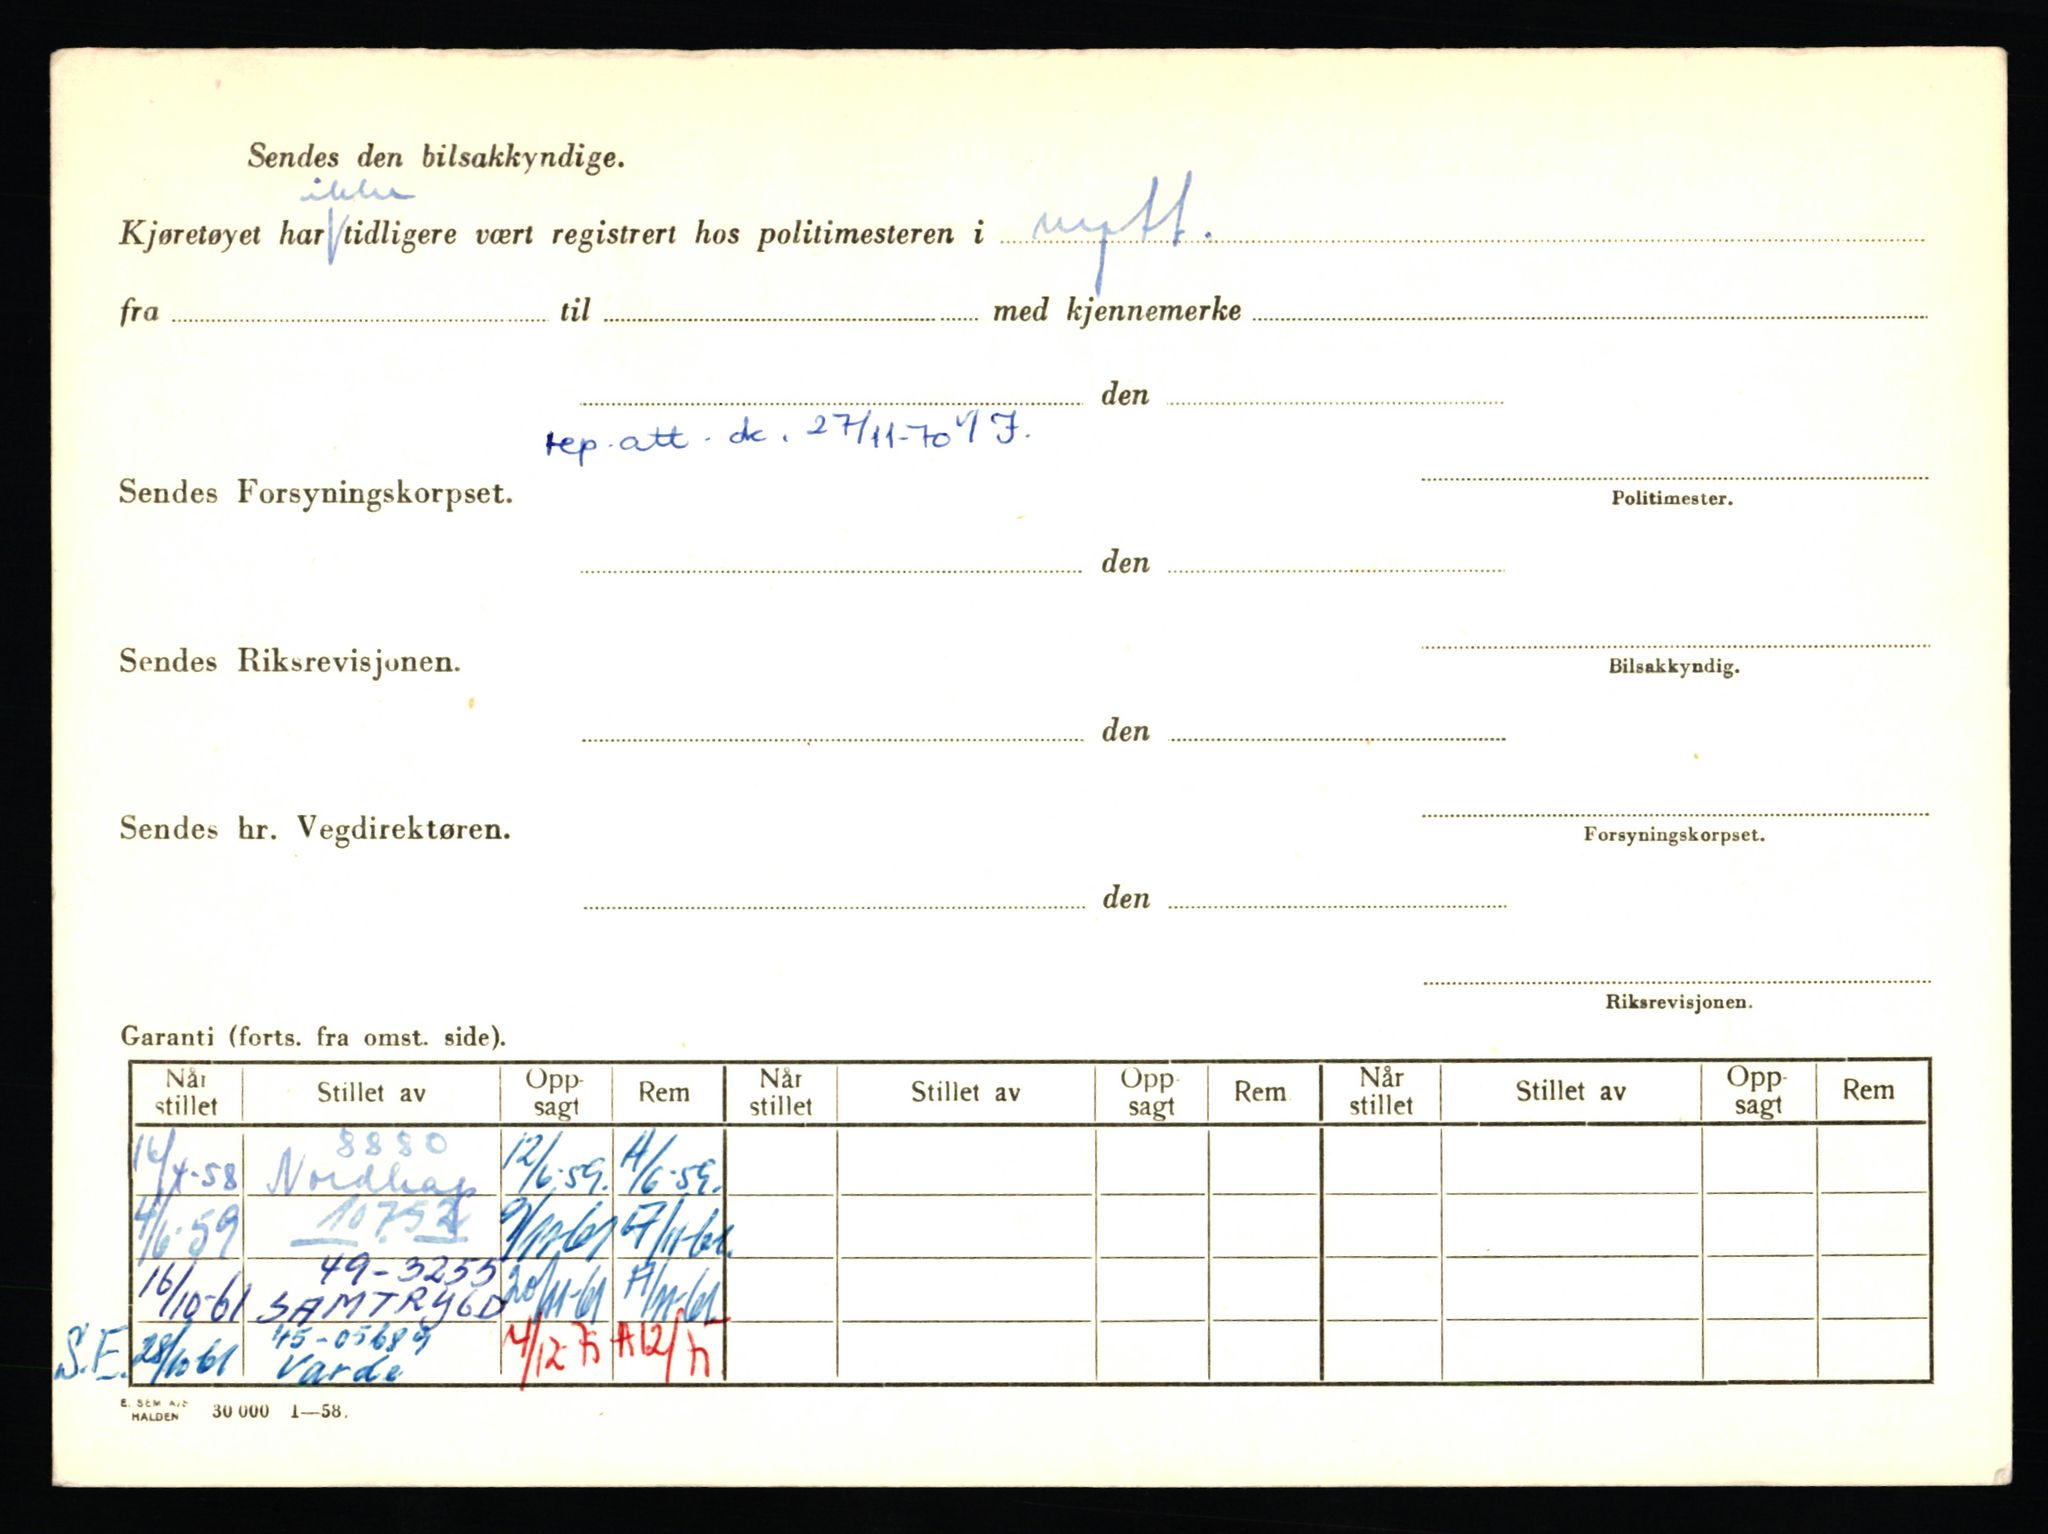 Sendes den bilsakkyndige.
ikke
Kjøretøyet har tidligere vært registrert hos politimesteren i nytt.
fra til med kjennemerke
den
rep. att. dc. 27/11-70 J.
Sendes Forsyningskorpset.
Politimester.
den
Sendes Riksrevisjonen.
Bilsakkyndig.
den
Sendes hr. Vegdirektøren.
Forsyningskorpset.
den
Riksrevisjonen.
Garanti (forts. fra omst. side).
Når stillet Stillet av Opp-sagt Rem Når stillet Stillet av Opp-sagt Rem Når stillet Stillet av Opp-sagt Rem
8880
16/4-58 Nordhap 12/6-59. A/6-59.
4/6-59 10752 9/11-61 17/11-61.
49-3255
16/10-61 SAMTRYGD 20/11-61 17/11-61.
45-05689
S.E. 28/10 61 Varde
E. SEM A/S
HALDEN 30 000 1—58.